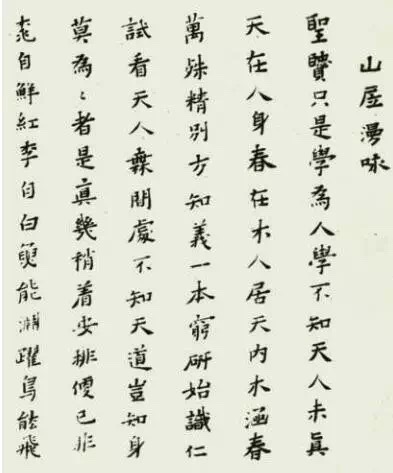 山居漫咏
聖賢只是學為人學不知天人未眞
天在人身春在木人居天內木涵春
萬殊精別方知義一本窮硏始識仁
試看天人無間處不知天道豈知身
莫為〻者是眞幾稍着安排便已非
桃自鮮紅李自白魚能淵躍鳥能飛